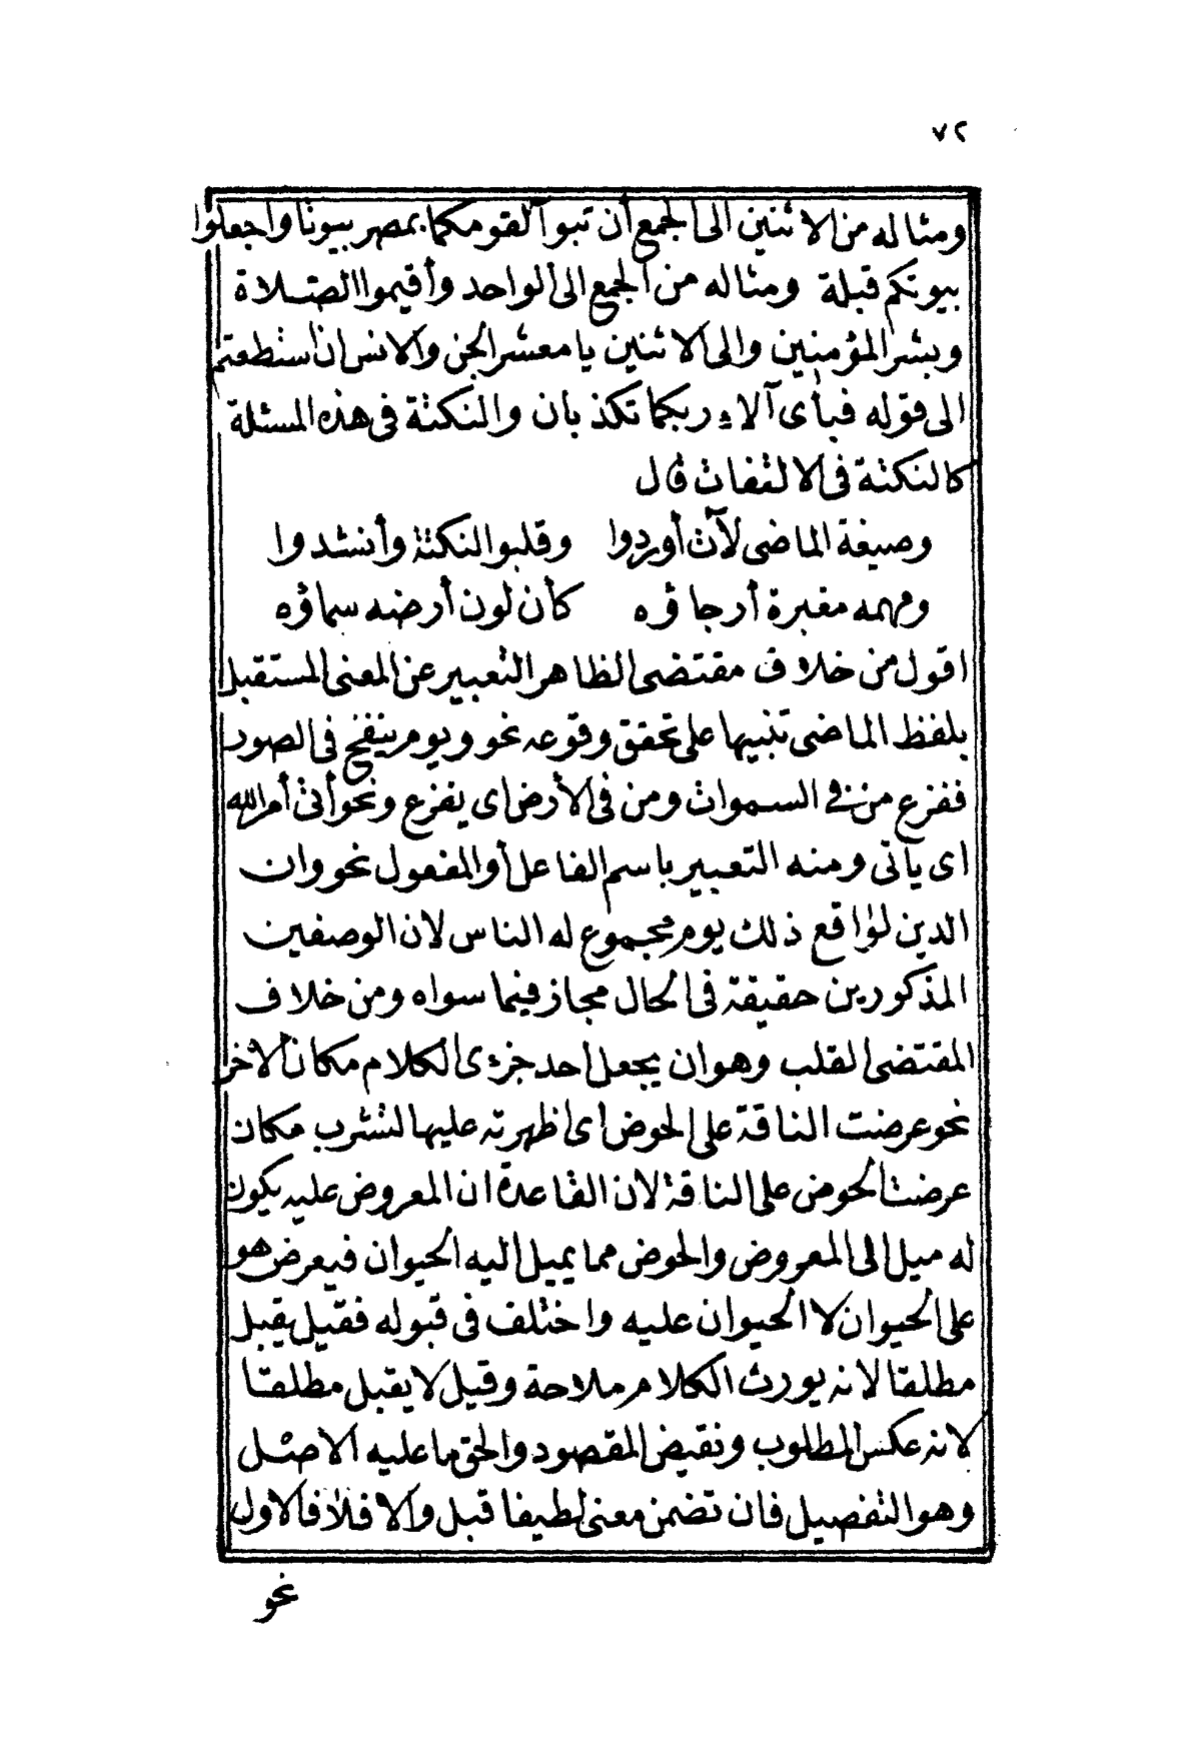 ٧٢
ومثاله من الاثنين الى الجمع أن تبوآ لقومكما بمصر بيوتا واجعلوا
بيوتكم قبلة ومثاله من الجمع الى الواحد وأقيموا الصلاة
وبشر المؤمنين والى الاثنين يا معشر الجن والانس ان استطعتم
الى قوله فبأى آلاء ربكما تكذبان والنكتة فى هذه المسئلة
كالنكتة فى الالتفات قال
وصيغة الماضى لآت أوردوا وقلبوا النكتة وأنشدوا
ومهمه مغبرة أرجاؤه كأن لون أرضه سماؤه
اقول من خلاف مقتضى الظاهر التعبير عن المعنى المستقبل
بلفظ الماضى تنبيها على تحقق وقوعه نحو ويوم ينفخ فى الصور
ففزع من فى السموات ومن فى الأرض اى يفزع ونحو أتى أمر الله
اى يأتى ومنه التعبير باسم الفاعل أو المفعول نحو وان
الدين لواقع ذلك يوم مجموع له الناس لان الوصفين
المذكورين حقيقة فى الحال مجاز فيما سواه ومن خلاف
المقتضى القلب وهو ان يجعل احد جزءى الكلام مكان الآخر
نحو عرضت الناقة على الحوض أى اظهرته عليها لتشرب مكان
عرضت الحوض على الناقة لان القاعدة ان المعروض عليه يكون
له ميل الى المعروض والحوض مما يميل اليه الحيوان فيعرض هو
على الحيوان لا الحيوان عليه واختلف فى قبوله فقيل يقبل
مطلقا لانه يورث الكلام ملاحة وقيل لا يقبل مطلقا
لانه عكس المطلوب ونقيض المقصود والحق ما عليه الاصل
وهو التفصيل فان تضمن معنى لطيفا قبل والا فلا فالاول
نحو